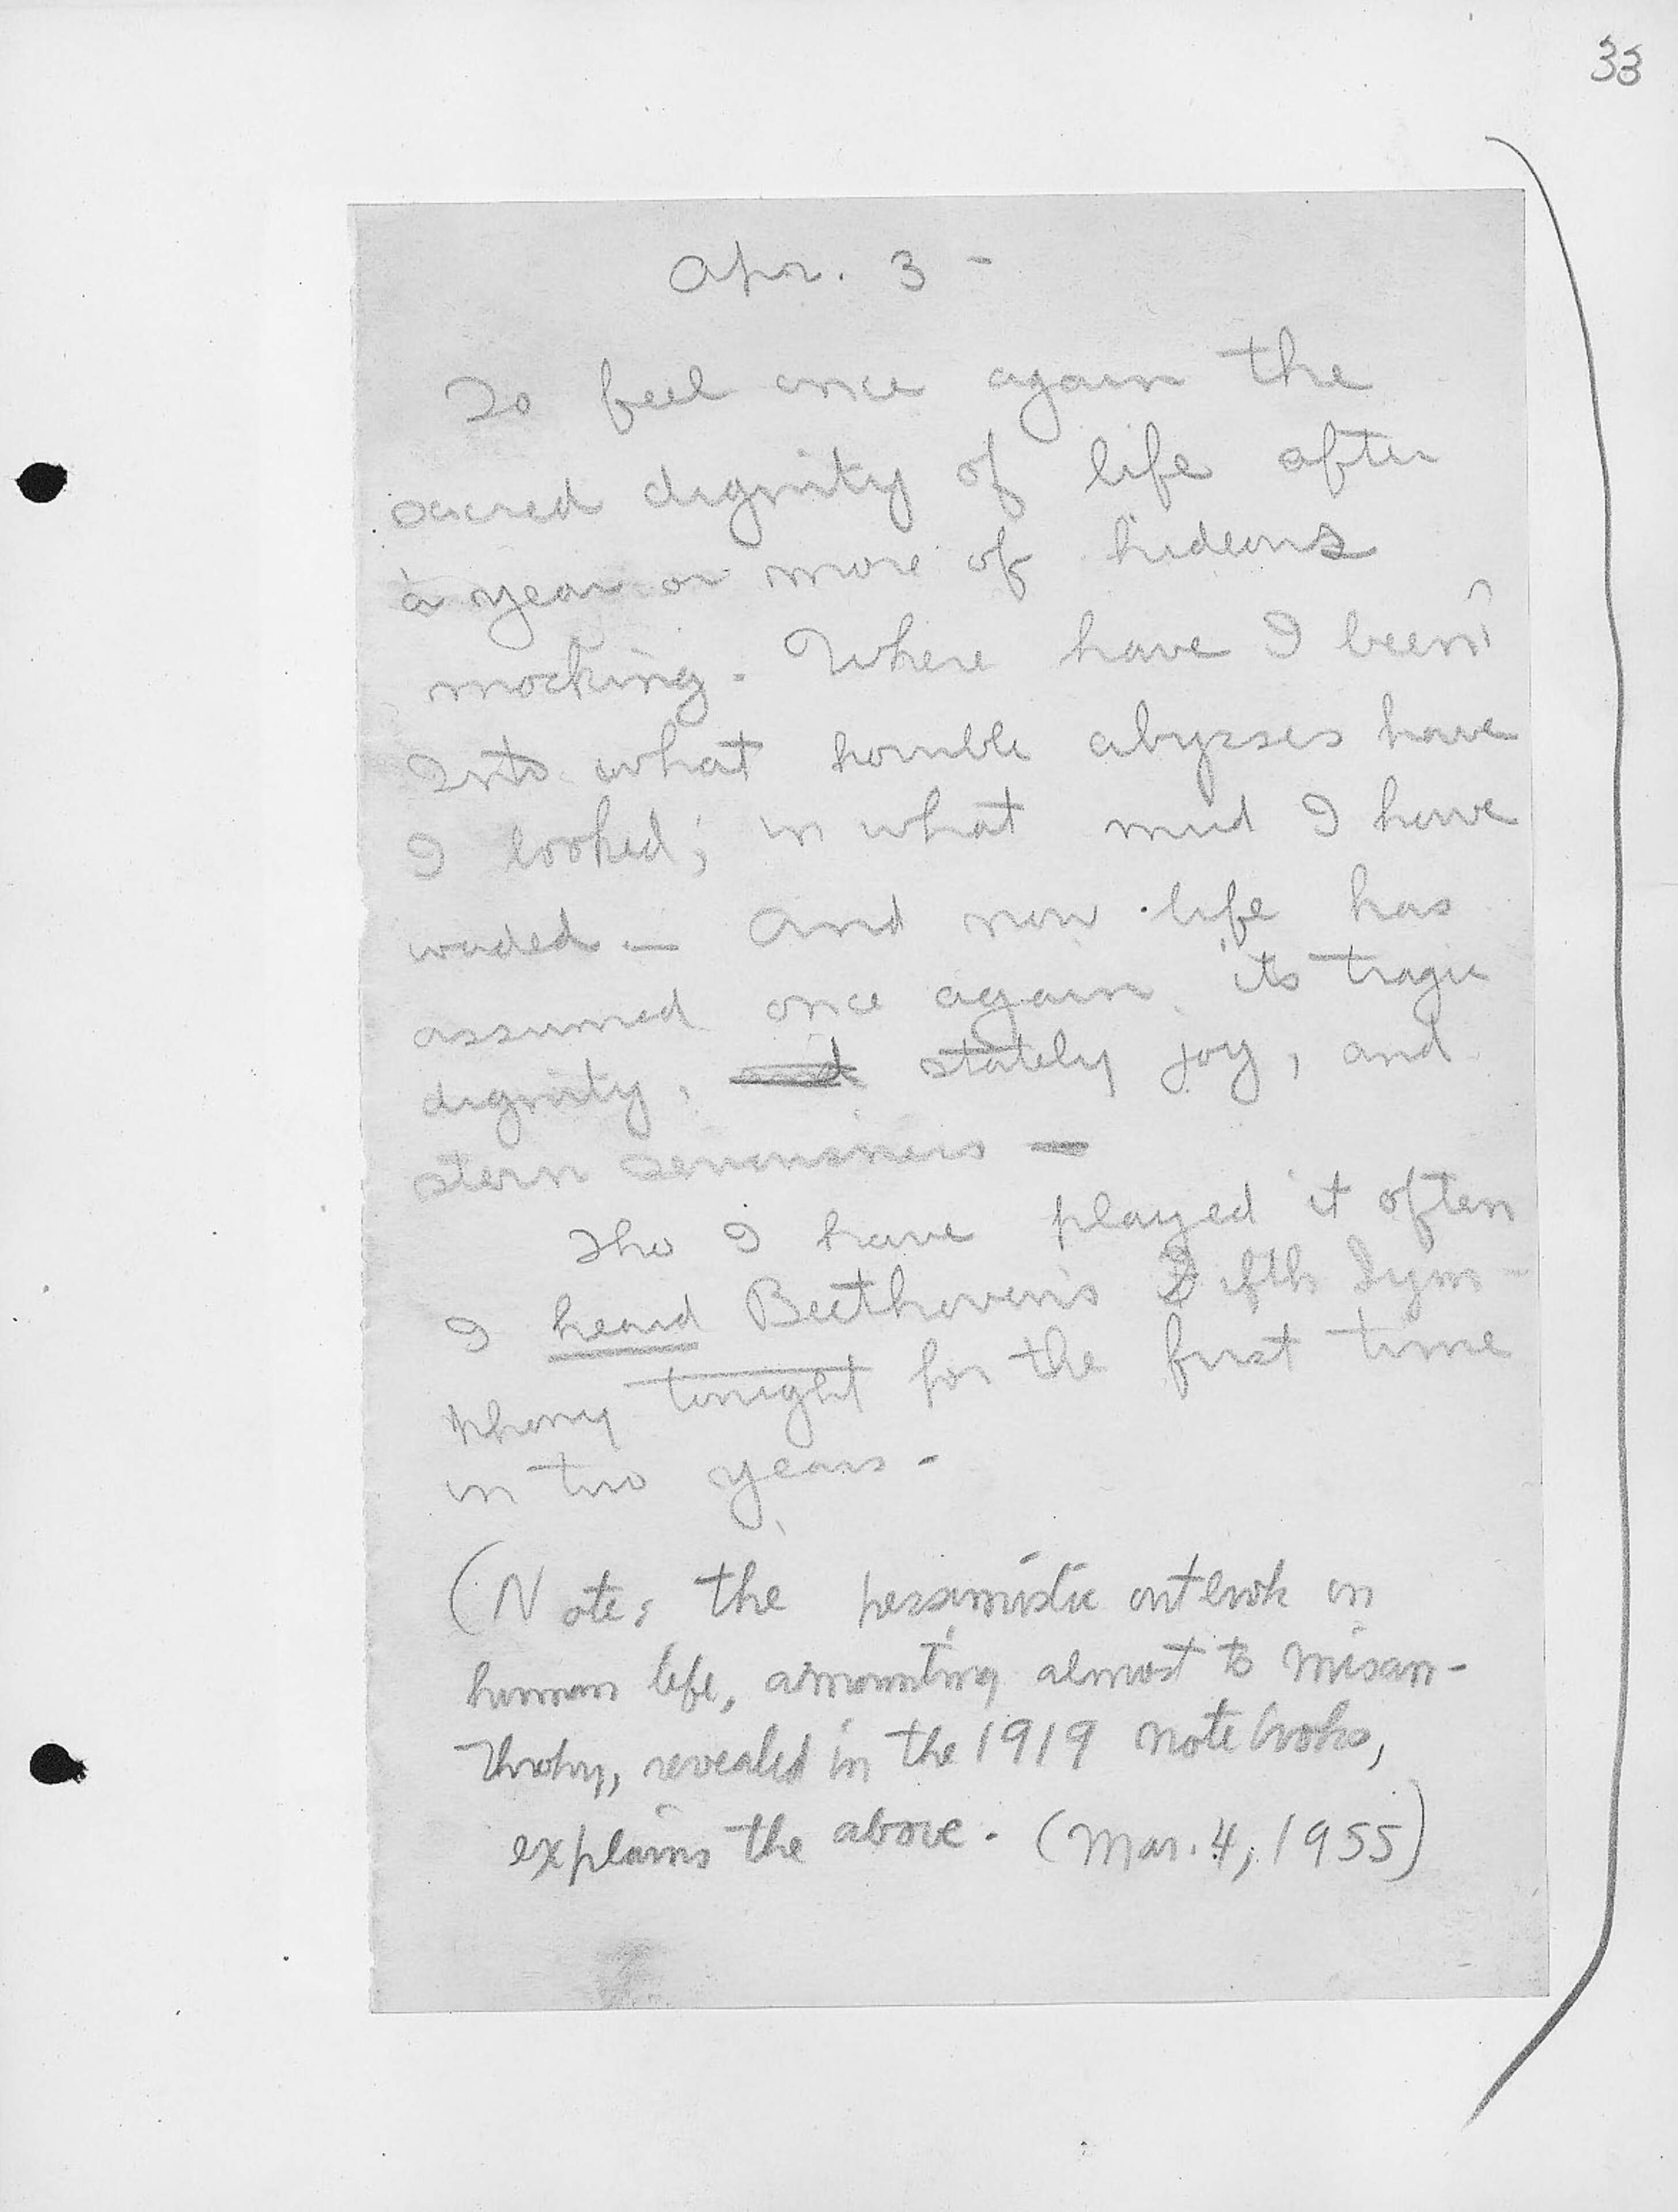 33
Apr. 3 -
To feel once again the
sacred dignity of life after
a year or more of hideous
mocking. Where have I been?
Into what horrible abysses have
I looked; in what mud I have
waded — And now life has
assumed once again its tragic
dignity, and stately joy, and
stern seriousness —
Tho I have played it often
I heard Beethoven's Fifth Sym-
phony tonight for the first time
in two years -
(Note: the pessimistic outlook on
human life, amounting almost to misan-
thropy, revealed in the 1919 notebooks,
explains the above. (Mar. 4, 1955)